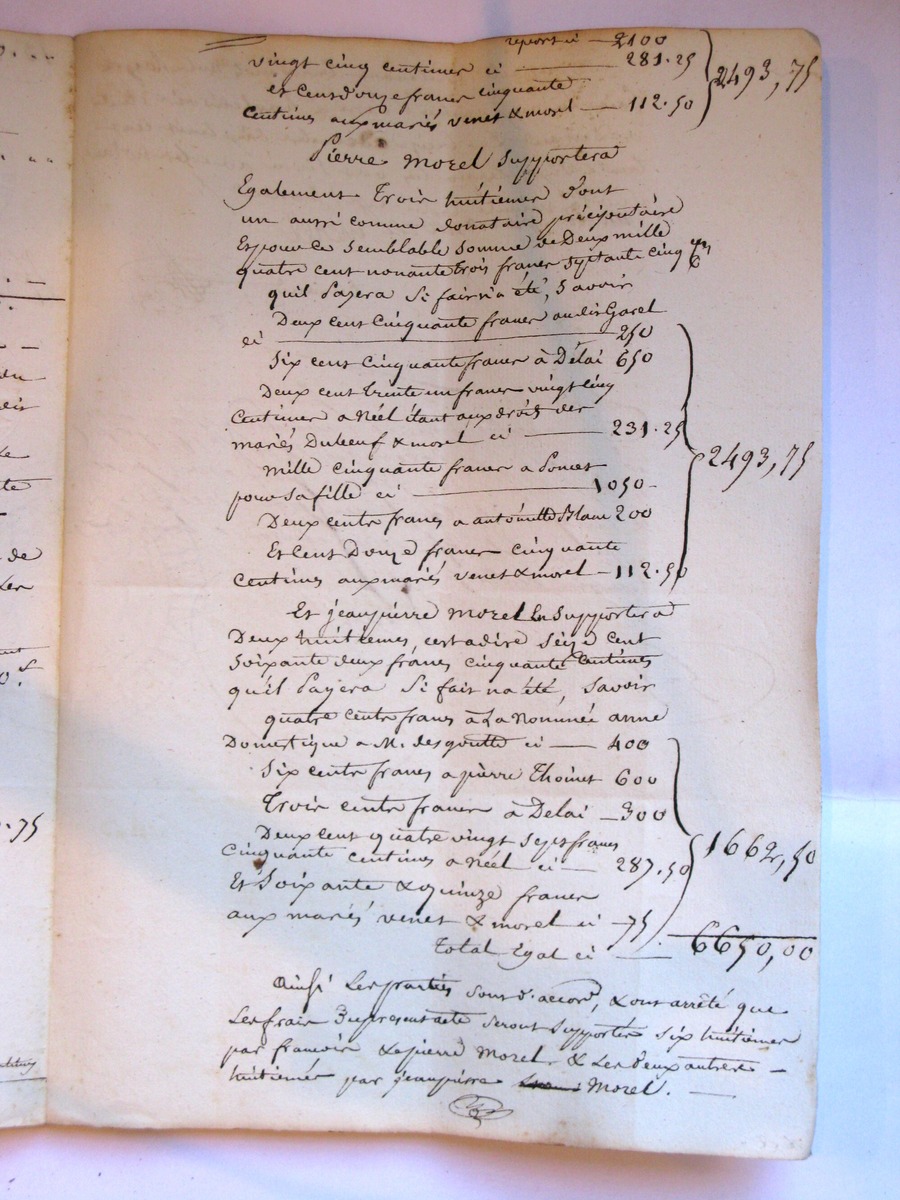 report ci — 2100
vingt cinq centimes ci — 281.25
et cent douze francs cinquante
centimes aux mariés venet & morel — 112.50
2493,75
Pierre Morel Supportera
Egalement Trois huitiemes dont
un aussi comme donataire précipuitaire
Et pour ce semblable somme de Deux mille
quatre cent nonante trois francs septante cinq
quil Payera Si fait n'a été, Savoir
Deux cent Cinquante francs audit Garel
ci — 250
Six cent Cinquante francs à Délai 650
Deux cent trente un francs vingt cinq
Centimes a Néel étant aux droits des
mariés Dubeuf & morel ci — 231.25
Mille cinquante francs a Poncet
pour sa fille ci — 1050 -
Deux cents francs a antoinette Blanc 200
Et Cent Douze francs cinquante
centimes aux mariés venet & morel — 112.50
2493,75
Et jeanpierre Morel en Supportera
Deux huitiemes, cestadire Seize cent
Soixante deux francs cinquante Centimes
qu'il Payera Si fait na été, Savoir
quatre cents francs à La Nommée anne
Domestique a M. desgoutte ci — 400
Six cents francs a pierre Thoinet 600
Trois cents francs à Delai — 300
Deux cent quatre vingt Sept francs
Cinquante centimes a Néel ci — 287.50
Et Soixante & quinze francs
aux mariés venet & morel ci — 75
1662,50
Total Egal ci — 6650,00
Ainsi Les parties Sont d'accord, & ont arrêté que
Les frais du present acte seront Supportés Six huitiemes
par francois & pierre Morel & Les deux autres —
huitiemes par jeanpierre Morel. —